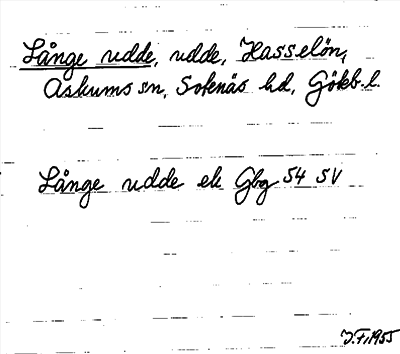 Långe udde, udde, Hasselön,
Askums sn, Sotenäs hd, Gökb. l.
Långe udde ek Gbg 54 SV
J.F. 1955